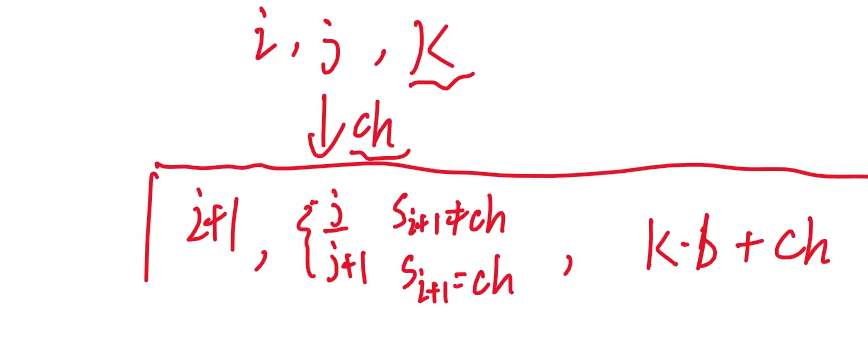 i, j, k
↓ ch
i+1, { j s_{i+1}≠ch
j+1 s_{i+1}=ch , k·b+ch